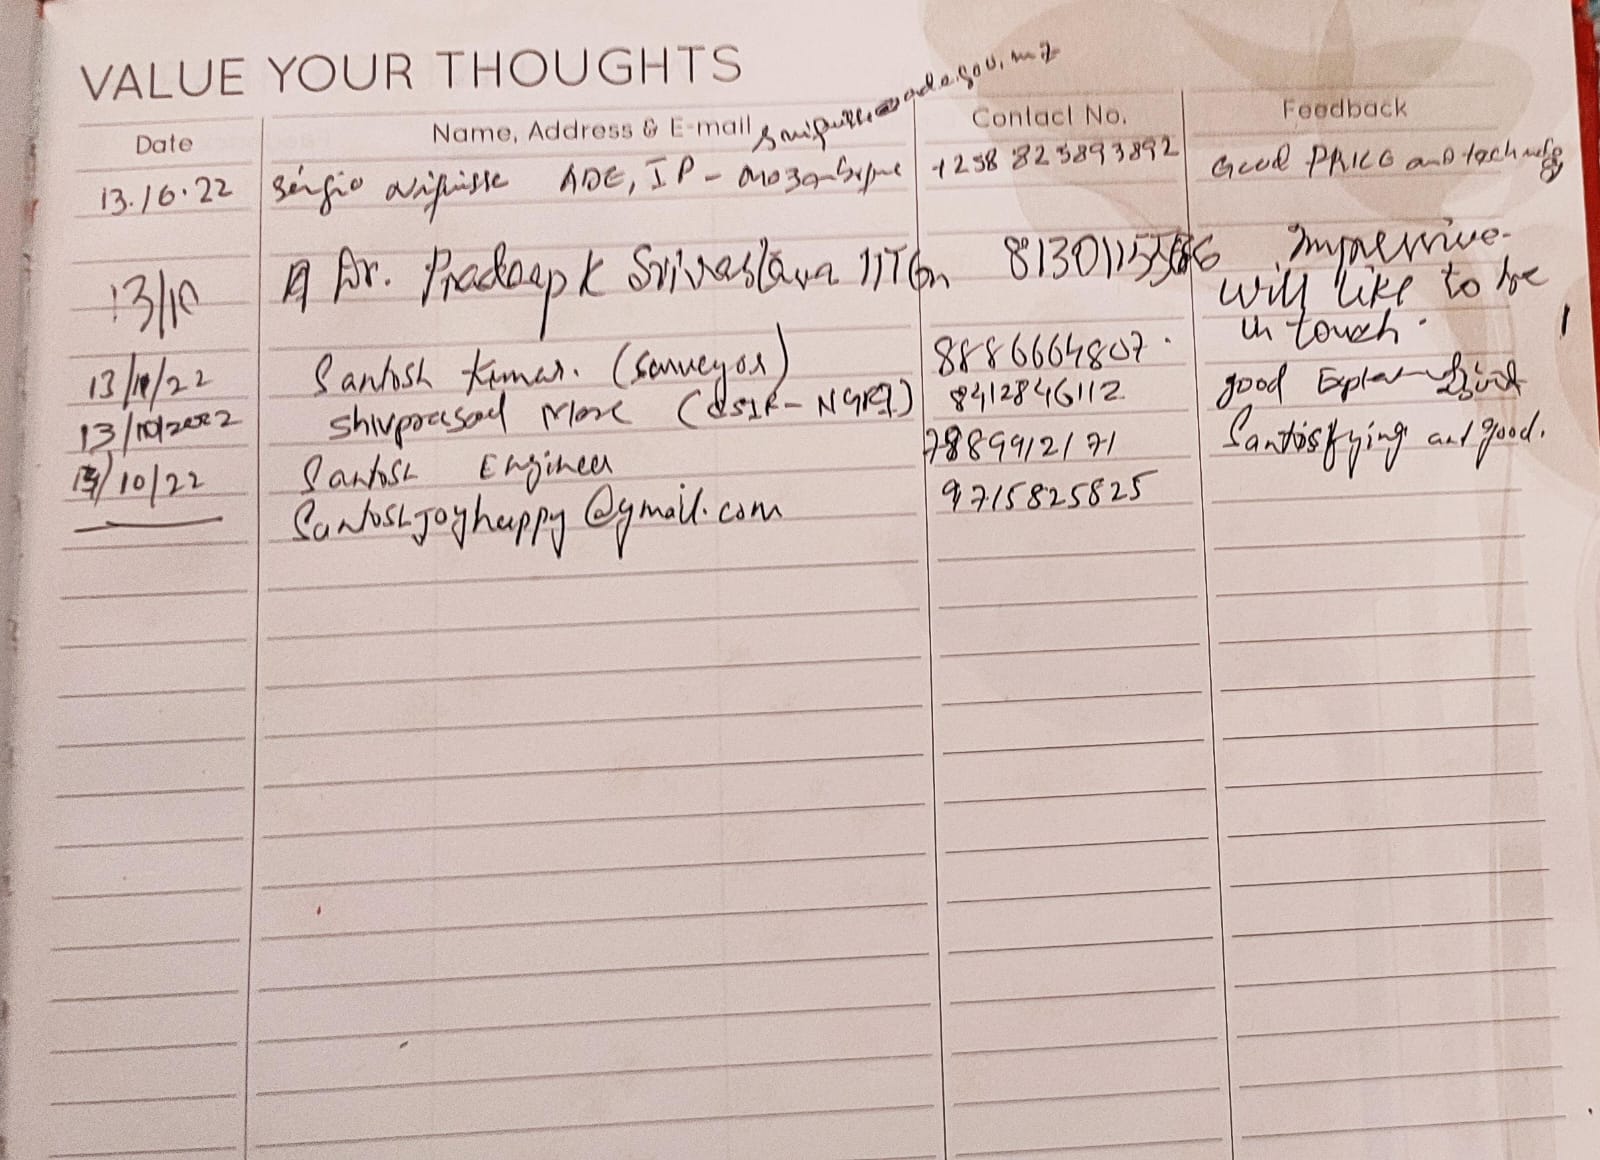 VALUE YOUR THOUGHTS
Date Name, Address & E-mail Contact No. Feedback
13.10.22 Sérgio ADE, IP - Mozambique +258 823893892 Good PRICE and
13/10 Dr. Pradeep K Srivastava Impressive.
will like to be
in touch.
13/10/22 Santosh Kumar. (Surveyor) 8886664807.
13/10/2022 Shivprasad More (CSIR-NGRI) 8412846112 good
13/10/22 Santosh Engineer 7889912171 Santisfying and good.
Santoshjoyhappy@gmail.com 9715825825